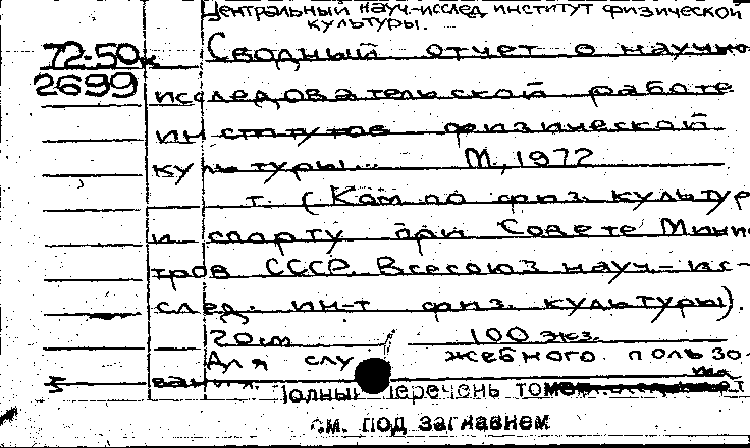 Центральный науч-исслед институт физической
культуры.
72-50к Сводный отчет о научно
2699 исследовательской работе
институтов физической
культуры... М., 1972
т. (Ком по физ. культур
и спорту при Совете Минис
тров СССР. Всесоюз науч.-ис-
след. ин-т физ. культуры).
20 см 100 экз.
Для служебного пользо
вания.
Полный перечень томов
см. под заглавием